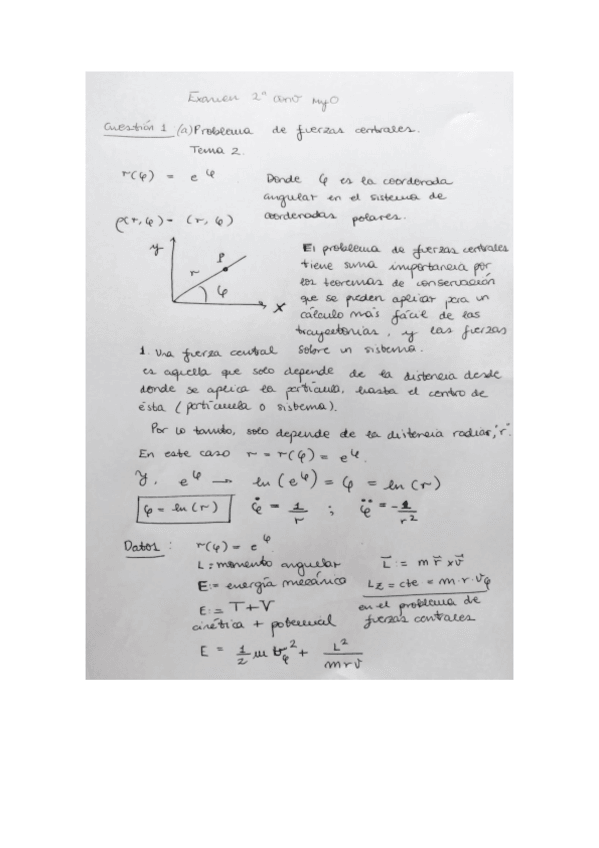 Examen 2ª conv MyO
Cuestión 1 (a) Problema de fuerzas centrales.
Tema 2.
r(φ) = e^φ
Donde φ es la coordenada
angular en el sistema de
coordenadas polares.
ρ(r, φ) = (r, φ)
y
P
r
φ
x
El problema de fuerzas centrales
tiene suma importancia por
los teoremas de conservación
que se pueden aplicar para un
cálculo más fácil de las
trayectorias, y las fuerzas
sobre un sistema.
1. Una fuerza central
es aquella que solo depende de la distancia desde
donde se aplica la partícula, hasta el centro de
ésta (partícula o sistema).
Por lo tanto, solo depende de la distancia radial, "r".
En este caso r = r(φ) = e^φ.
Y, e^φ → ln(e^φ) = φ = ln(r)
φ = ln(r) φ̇ = 1/r ; φ̈ = -1/r²
Datos: r(φ) = e^φ
L = momento angular L⃗ := m r⃗ x v⃗
E := energía mecánica Lz = cte = m·r·vφ
E := T + V en el problema de
cinética + potencial fuerzas centrales
E = 1/2 m vφ² + L²/mrv